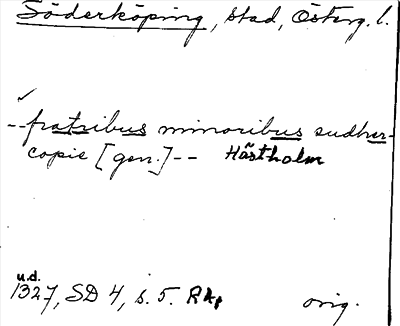 Söderköping, stad, Österg. l.
✓
-- fratribus minoribus sudher-
copie [gen.] -- Hästholm
u.d.
1327, SD 4, s. 5. Rkp orig.